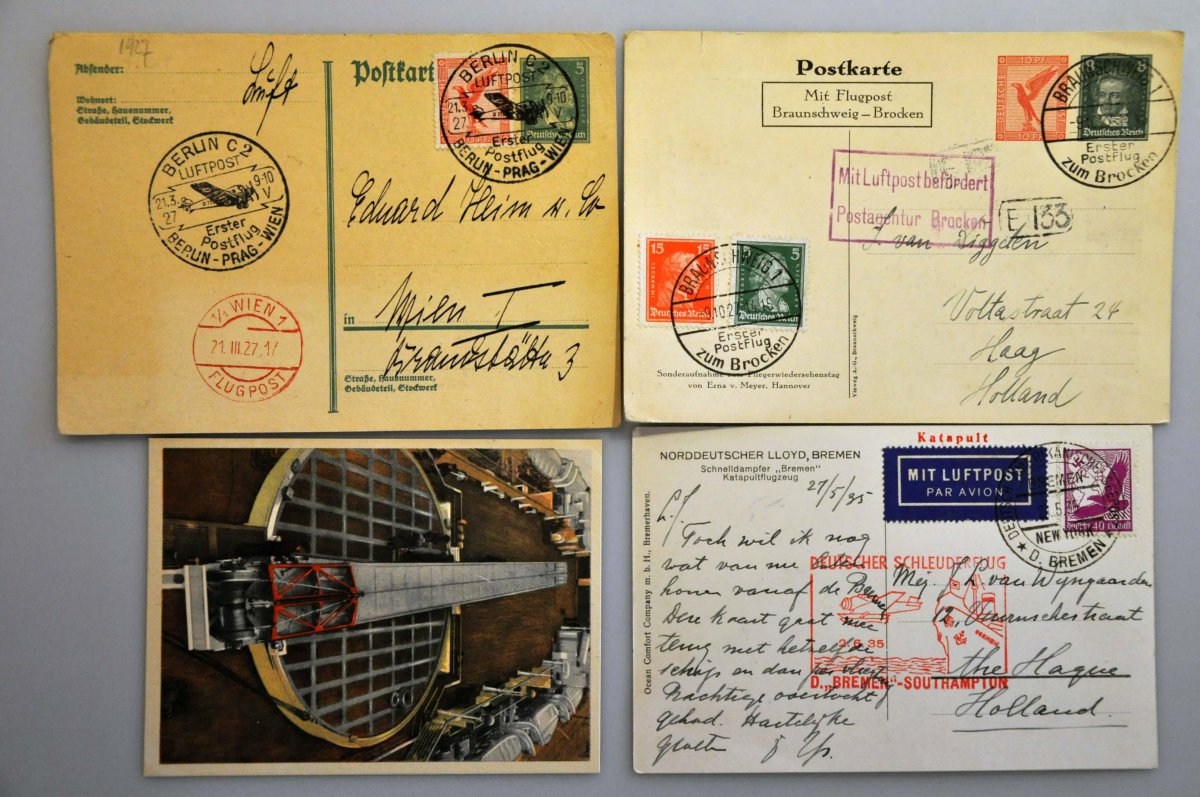 1927
Absender:
Luft
Wohnort:
Straße, Hausnummer,
Gebäudeteil, Stockwerk
Postkart
BERLIN C 2
LUFTPOST
21.3.
27
9-10
V
Erster
Postflug
BERLIN - PRAG - WIEN
5
10 PF
Deutsches Reich
BERLIN C 2
LUFTPOST
21.3.
27
9-10
V
Erster
Postflug
BERLIN - PRAG - WIEN
Eduard Heim u. Co
in
Wien I
Brandstätte 3
Straße, Hausnummer,
Gebäudeteil, Stockwerk
1/1 WIEN 1
21.III.27.
FLUGPOST
Postkarte
Mit Flugpost
Braunschweig — Brocken
10 PF
DEUTSCHE
8
Deutsches Reich
BRAUNSCHWEIG 1
Erster
Postflug
zum Brocken
Mit Luftpost befördert
Postagentur Brocken
E 133
J. van Diggelen
Voltastraat 24
Haag
Holland
15 15
IMMANUEL
Deutsches Reich
5
Deutsches Reich
BRAUNSCHWEIG 1
Erster
Postflug
zum Brocken
Sonderaufnahme zum Fliegerwiedersehenstag
von Erna v. Meyer, Hannover
Vieweg A.-G., Braunschweig
Katapult
NORDDEUTSCHER LLOYD, BREMEN
Schnelldampfer „Bremen"
Katapultflugzeug
27/5/35
MIT LUFTPOST
PAR AVION
BREMEN-
NEW YORK
D. BREMEN
40
Ocean Comfort Company m. b. H., Bremerhaven.
L.J.
Toch wil ik nog
wat van me laten
horen vanaf de Bremen
Deze kaart gaat mee
terug met hetzelfde
schip en dan per vliegt.
Prachtige overtocht
gehad. Hartelijke
groeten
DEUTSCHER SCHLEUDERFLUG
BREMEN
2.6.35
D. „BREMEN"-SOUTHAMPTON
Mej. van Wyngaarden
the Hague
Holland.